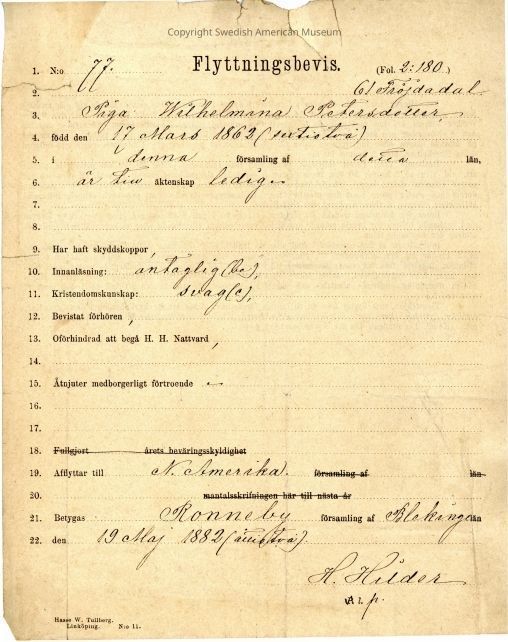 Copyright Swedish American Museum
Flyttningsbevis.
1. N:o 77. (Fol. 2:180.)
2. 61 Fröjdadal
3. Piga Wilhelmina Petersdotter,
4. född den 17 Mars 1862 (sextiotvå)
5. i denna församling af detta län,
6. är till äktenskap ledig
7.
8.
9. Har haft skyddskoppor,
10. Innanläsning: antaglig (ba),
11. Kristendomskunskap: svag (c),
12. Bevistat förhören ,
13. Oförhindrad att begå H. H. Nattvard ,
14.
15. Åtnjuter medborgerligt förtroende
16.
17.
18. Fullgjort årets beväringsskyldighet
19. Afflyttar till N. Amerika. församling af län
20. mantalsskrifningen här till nästa år
21. Betygas Ronneby församling af Blekinge län
22. den 19 Maj 1882 (åttiotvå).
H. Hilder
v. p.
Hasse W. Tullberg.
Linköping. N:o 11.